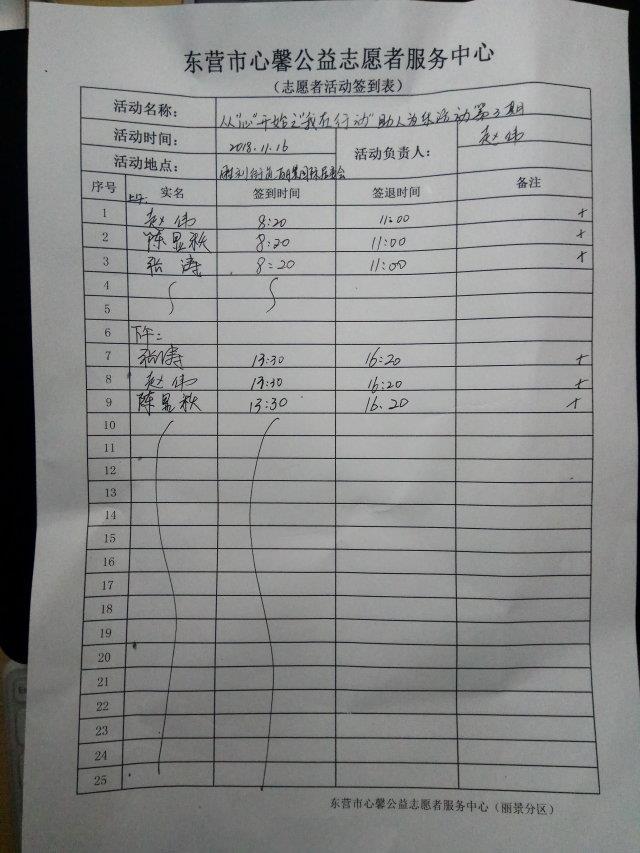 东营市心馨公益志愿者服务中心
（志愿者活动签到表）
活动名称： 从"心"开始之"我在行动"助人为乐活动第3期
活动时间： 2018.11.16 活动负责人： 赵伟
活动地点：
序号 实名 签到时间 签退时间 备注
上午:
1 赵伟 8:20 11:00 +
2 陈显秩 8:20 11:00 +
3 张涛 8:20 11:00 +
4
5
6 下午:
7 张涛 13:30 16:20 +
8 赵伟 13:30 16:20 +
9 陈显秩 13:30 16.20 +
10
11
12
13
14
15
16
17
18
19
20
21
22
23
24
25
东营市心馨公益志愿者服务中心（丽景分区）